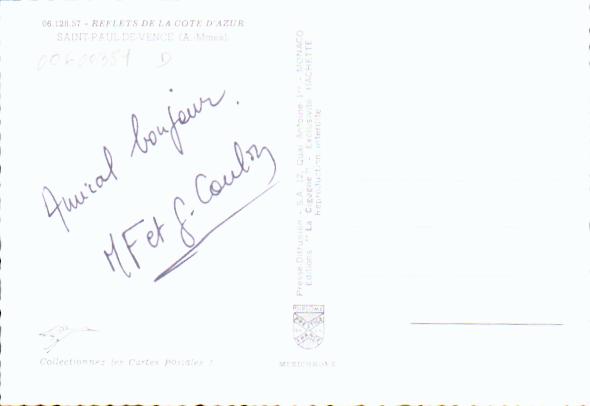 06.128.57 - REFLETS DE LA COTE D'AZUR
SAINT-PAUL-DE-VENCE (A.-Mmes)
00600354 D
Amical bonjour.
MF et G. Coulon
Presse-Diffusion - S.A. 12, Quai Antoine 1er - MONACO
Editions "La Cigogne" - Exclusivité HACHETTE
Reproduction interdite
Collectionnez les Cartes Postales !
MEXICHROME